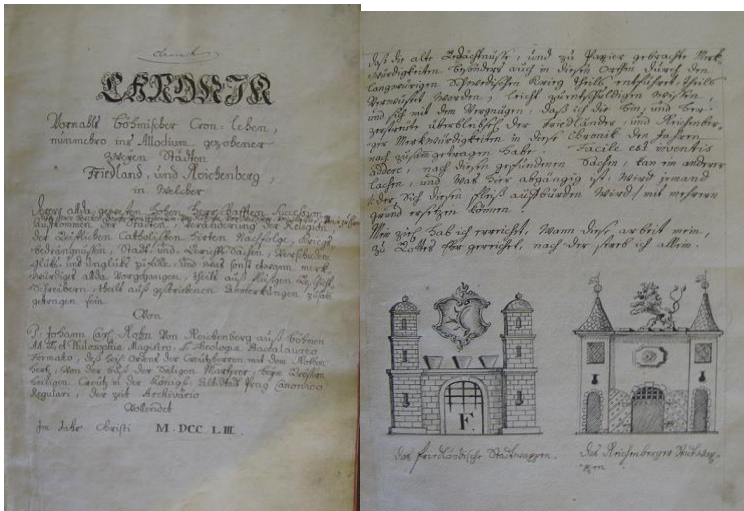 CHRONIK
Vormahls böhmischer Cron-lehen,
nunmehro ins Allodium gezohener
zweyen Städten
Friedland, und Reichenberg,
in welcher
Hohen Herrschafften Succession
Aufkommen der Städten, Veränderung der Religion
der Geistlichen Catholischen Hirten Nachfolge, Kriegs
bedrängnussen, Stadt und
glüks und Unglüks zufälle, und was sonst merk
würdiges alda Vorgegangen, theils auß
theils auß geschriebenen Anmerkungen
getragen sein
Von
P. Johann Carl Rohn Von Reichenberg auß Böhmen
AA. et Philosophiae Magistro, Theologiae Baccalaureo
Formato, deß Ordens der Creutzherren mit dem Rothen
Hertz, Von der buß der Seeligen Martyrer, beym
heiligen Creutz in der Königl. Altstadt Prag Canonico
Regulari, der zeit Archivario
Vollendet
Im Jahr Christi M.DCC.LIII.
daß die alte Gedächtnusse, und zu Papier gebrachte Merk
würdigkeiten besonders auch in diesen Orthen durch den
langwürigen Schwedischen Krieg theils entführet theils
Verwüstet worden, leicht zuentschuldigen wissen,
und sich mit dem Vergnügen, daß ich die hin, und her
zerstreute überbleibsel der Friedländer, und Reichenber
ger Merkwürdigkeiten in diese Chronik den Jahren
nach zusam getragen habe. Facile est inventis
addere, nach diesen gefundenen Sachen, kan ein anderer
suchen, und was hier abgängig ist wird jemand
der sich diesen fleiß aufbürden wird mit mehrern
grund ersetzen können.
Mein ziehl hab ich erreicht, Wann diese arbeit mein,
zu Gottes Ehr gereichet, nach der streb ich allein.
F.
Das Friedländische Stadtwappen.
Das Reichenberger Stadtwap-
pen